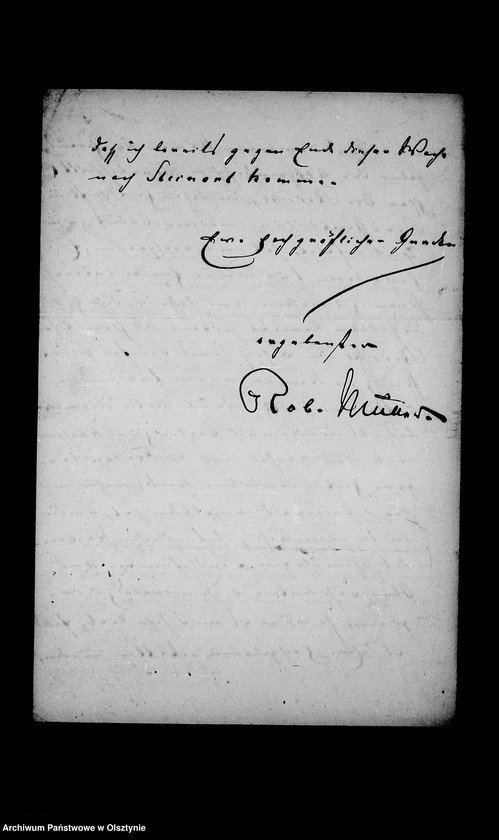 daß ich bereits gegen Ende dieser Woche
nach Steinort komme.
Ew. hochgräflichen Gnaden
ergebenster
Rob. Müller.
Archiwum Państwowe w Olsztynie